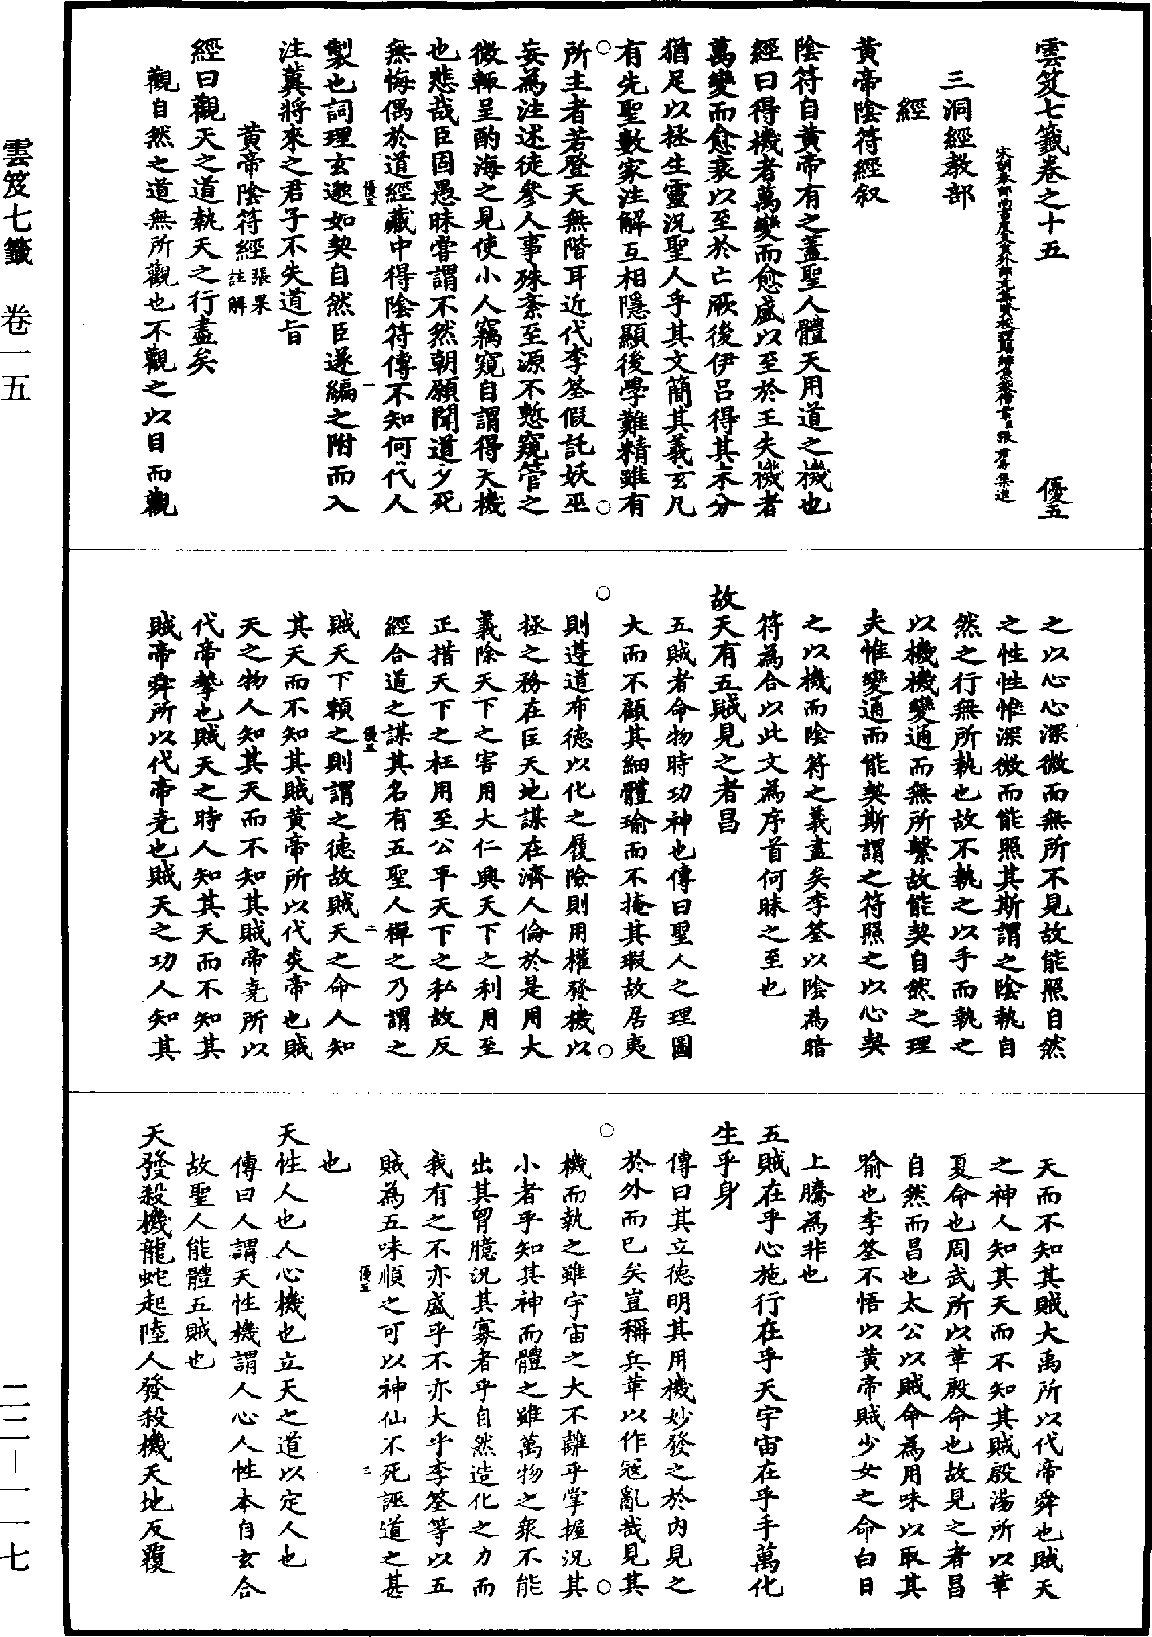 雲笈七籤卷之十五 優五
三洞經教部
經
黃帝陰符經叙
陰符自黃帝有之蓋聖人體天用道之機也
經曰得機者萬變而愈盛以至於王失機者
萬變而愈衰以至於亡厥後伊呂得其末分
猶足以拯生靈況聖人乎其文簡其義玄凡
有先聖數家注解互相隱顯後學難精雖有
所主者若登天無階耳近代李筌假託妖巫
妄為注述徒參人事殊紊至源不慙窺管之
微輒呈酌海之見使小人竊窺自謂得天機
也悲哉臣固愚昧嘗謂不然朝願聞道夕死
無悔偶於道經藏中得陰符傳不知何代人
製也詞理玄邈如契自然臣遂編之附而入
注冀將來之君子不失道旨
黃帝陰符經 張果註解
經曰觀天之道執天之行盡矣
觀自然之道無所觀也不觀之以目而觀
之以心心深微而無所不見故能照自然
之性性惟深微而能照其斯謂之陰執自
然之行無所執也故不執之以手而執之
以機機變通而無所繫故能契自然之理
夫惟變通而能契斯謂之符照之以心契
之以機而陰符之義盡矣李筌以陰為暗
符為合以此文為序首何昧之至也
故天有五賊見之者昌
五賊者命物時功神也傳曰聖人之理圖
大而不顧其細體瑜而不掩其瑕故居夷
則遵道布德以化之履險則用權發機以
拯之務在匡天地謀在濟人倫於是用大
義除天下之害用大仁興天下之利用至
正措天下之枉用至公平天下之私故反
經合道之謀其名有五聖人禪之乃謂之
賊天下賴之則謂之德故賊天之命人知
其天而不知其賊黃帝所以代炎帝也賊
天之物人知其天而不知其賊帝堯所以
代帝摯也賊天之時人知其天而不知其
賊帝舜所以代帝堯也賊天之功人知其
天而不知其賊大禹所以代帝舜也賊天
之神人知其天而不知其賊殷湯所以革
夏命也周武所以革殷命也故見之者昌
自然而昌也太公以賊命為用味以取其
喻也李筌不悟以黃帝賊少女之命白日
上騰為非也
五賊在乎心施行在乎天宇宙在乎手萬化
生乎身
傳曰其立德明其用機妙發之於內見之
於外而已矣豈稱兵革以作寇亂哉見其
機而執之雖宇宙之大不離乎掌握況其
小者乎知其神而體之雖萬物之衆不能
出其胷臆況其寡者乎自然造化之力而
我有之不亦盛乎不亦大乎李筌等以五
賊為五味順之可以神仙不死誣道之甚
也
天性人也人心機也立天之道以定人也
傳曰人謂天性機謂人心人性本自玄合
故聖人能體五賊也
天發殺機龍蛇起陸人發殺機天地反覆
優五 一
優五 二
優五 三
雲笈七籤 卷一五
二二－一一七